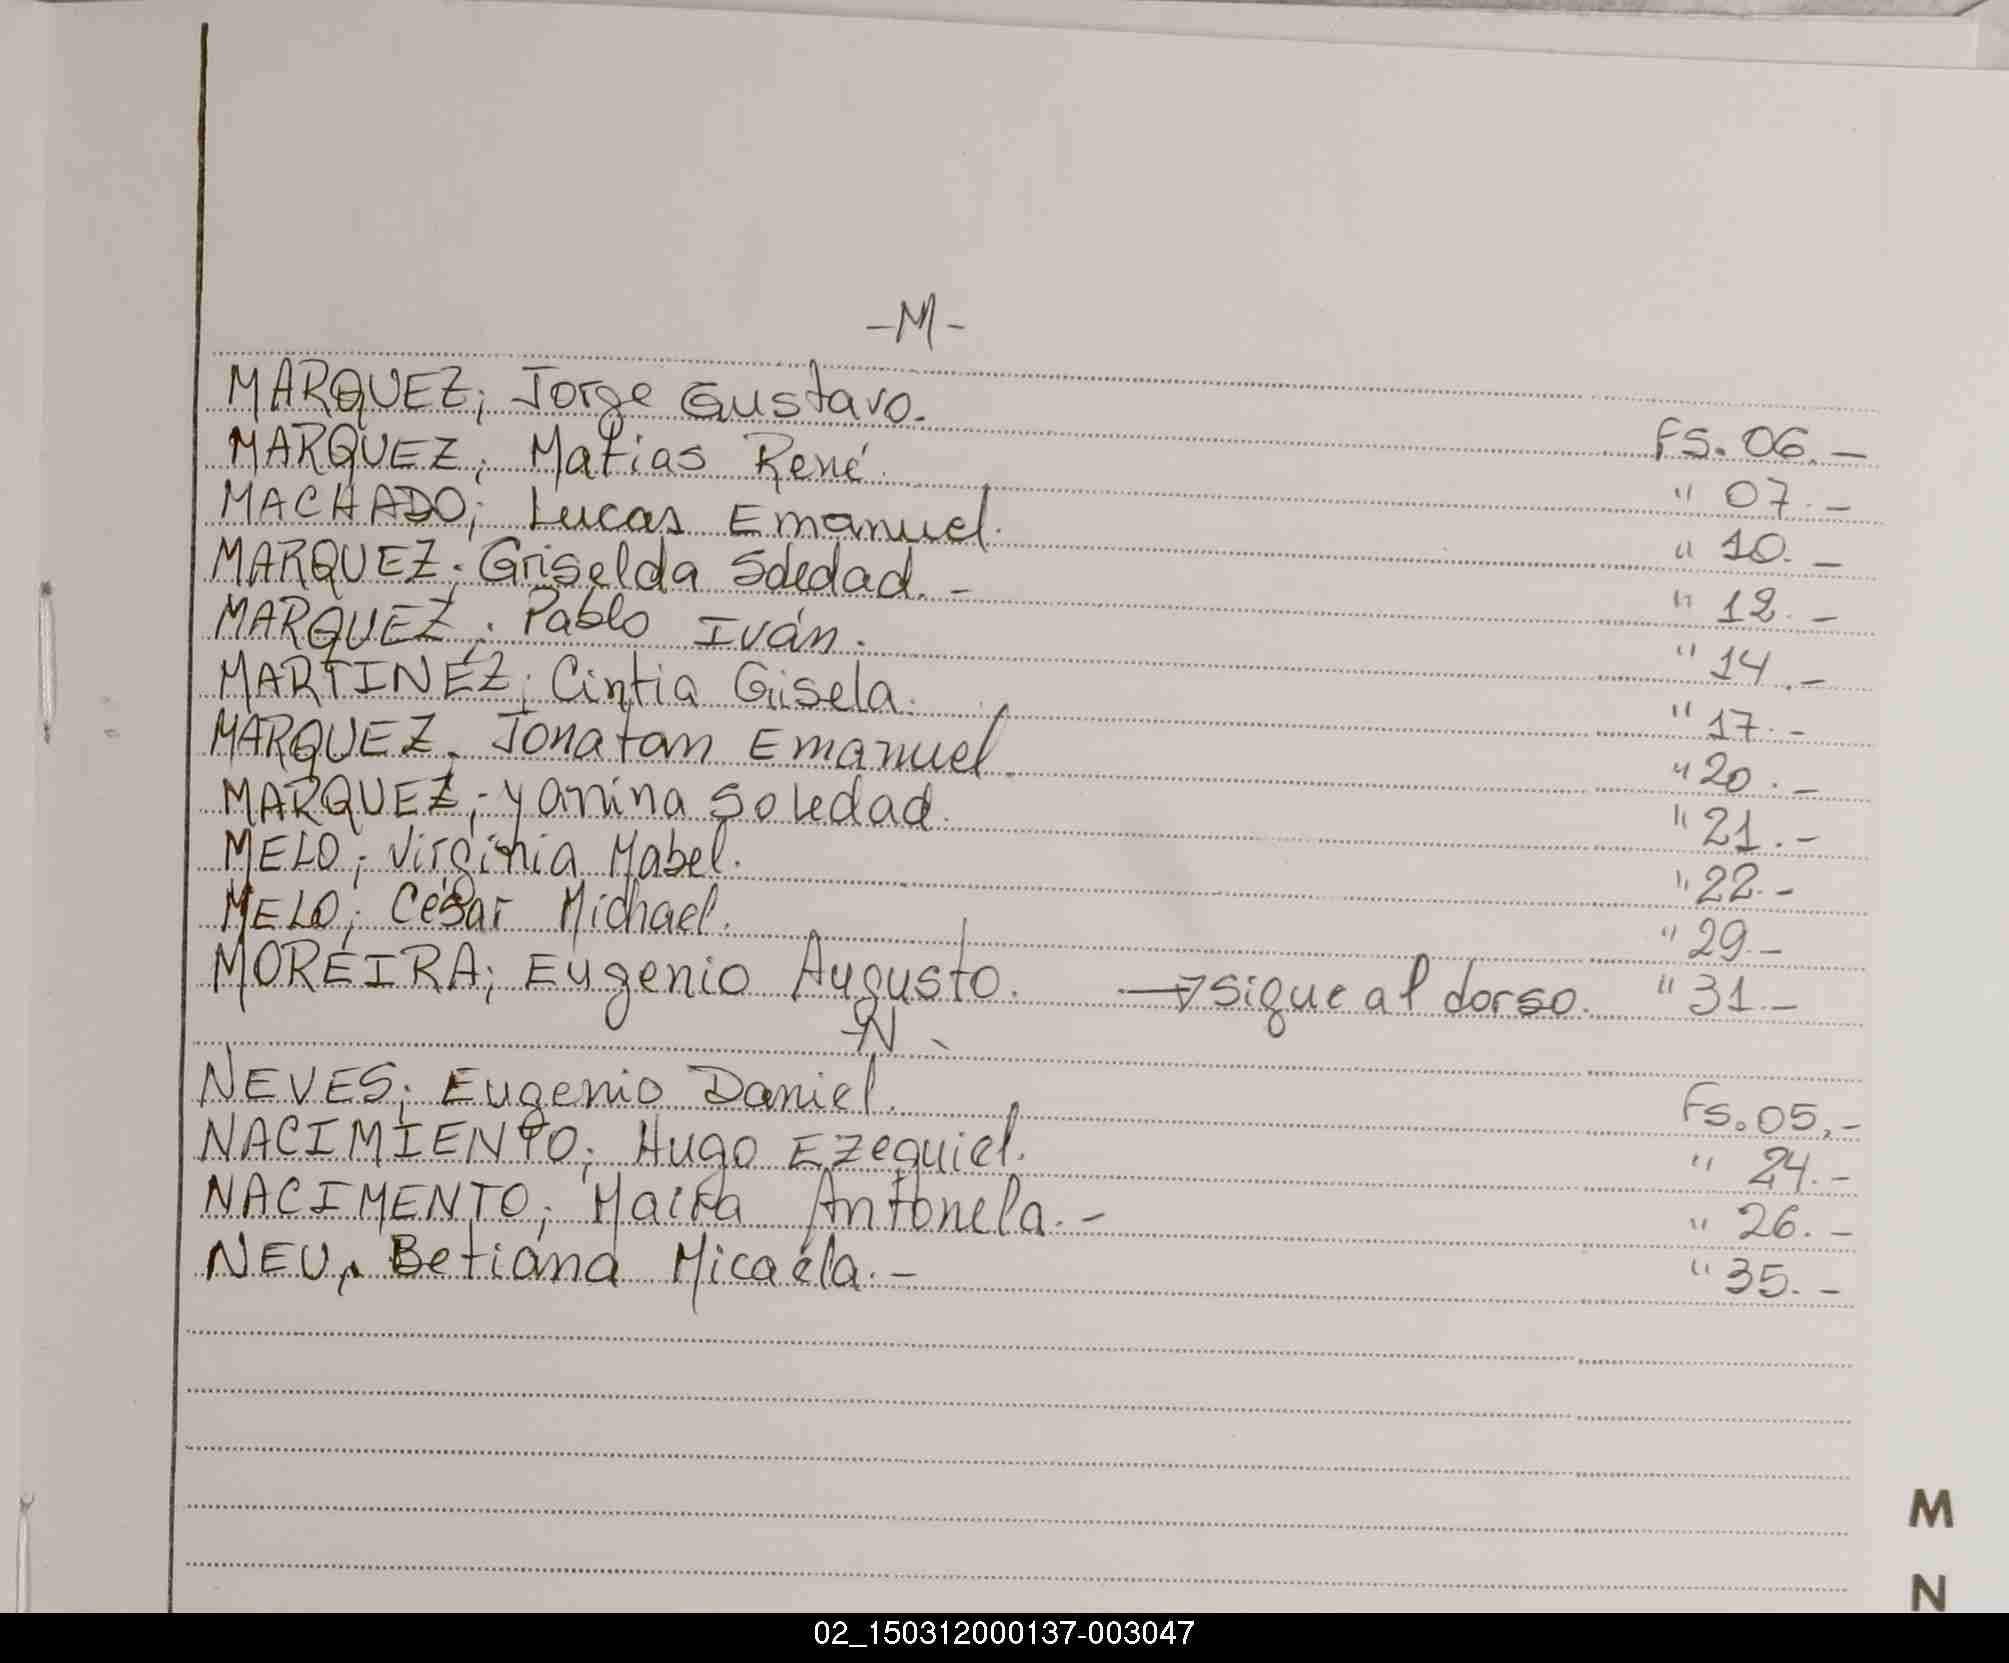 -M-
MARQUEZ; Jorge Gustavo. Fs. 06.-
MARQUEZ; Matias René. " 07.-
MACHADO; Lucas Emanuel. " 10.-
MARQUEZ; Griselda Soledad.- " 12.-
MARQUEZ; Pablo Iván. " 14.-
MARTINEZ; Cintia Gisela. " 17.-
MARQUEZ; Jonatan Emanuel. " 20.-
MARQUEZ; Yanina Soledad. " 21.-
MELO; Virginia Mabel. " 22.-
MELO; César Michael. " 29.-
MOREIRA; Eugenio Augusto. → sigue al dorso. " 31.-
-N-
NEVES; Eugenio Daniel. Fs. 05.-
NACIMIENTO; Hugo Ezequiel. " 24.-
NACIMENTO; Maira Antonela.- " 26.-
NEU, Betiana Micaela.- " 35.-
M
N
02_150312000137-003047